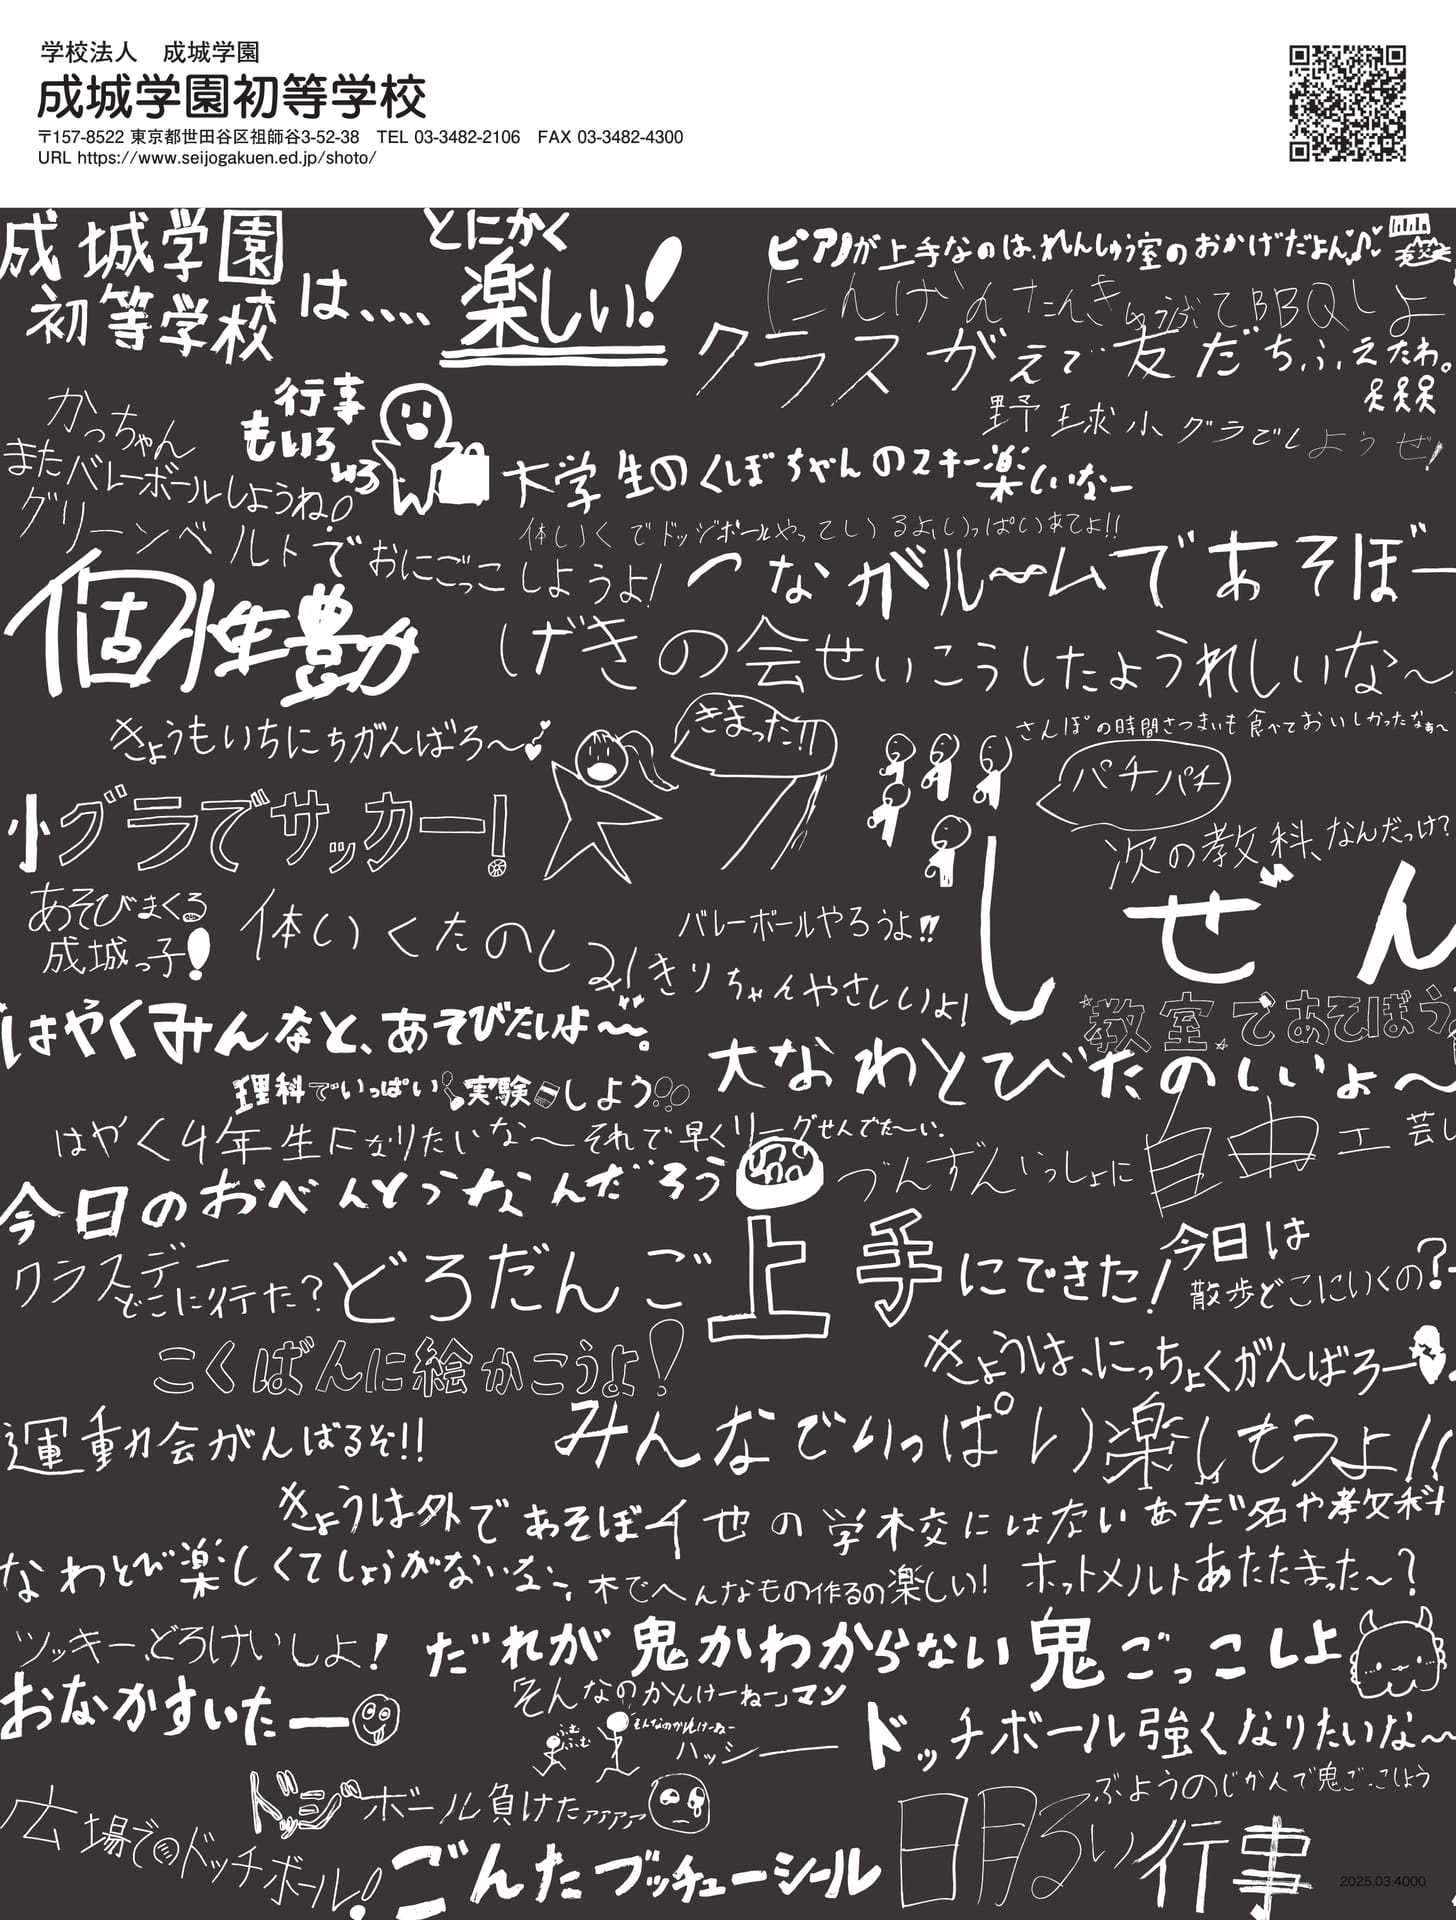 学校法人　成城学園
成城学園初等学校
〒157-8522 東京都世田谷区祖師谷3-52-38　TEL 03-3482-2106　FAX 03-3482-4300
URL https://www.seijogakuen.ed.jp/shoto/
成城学園
初等学校
は、、、、
とにかく
楽しい!
ピアノが上手なのは、れんしゅう室のおかげだよん♪
BBQしよ
クラスがえで友だちふえたわ。
野球小グラでしようぜ!
かっちゃん
またバレーボールしようね!
行事
もいろ
いろ
大学生のくぼちゃんのスキー楽しいなー
体いくでドッジボールやってしいるよ、いっぱいあてよ!!
グリーンベルトでおにごっこしようよ!
つながルームであそぼー
個性豊か
げきの会せいこうしたようれしいな〜
きょうもいちにちがんばろ〜
きまった!!
さんぽの時間さつまいも食べておいしかったなぁ〜
パチパチ
小グラでサッカー!
次の教科、なんだっけ?
しぜん
あそびまくる
成城っ子!
体いくたのしみ!
バレーボールやろうよ!!
きりちゃんやさしいよ!
教室であそぼう
はやくみんなと、あそびたいよ〜。
大なわとびたのしいよ〜
理科でいっぱい実験しよう
はやく4年生になりたいな〜それで早くリーグせんでた〜い.
自由
工芸し
づんずんいっしょに
今日のおべんとうなんだろう
クラスデー
どこに行た?
どろだんご上手にできた!
今日は
散歩どこにいくの?
こくばんに絵かこうよ!
きょうは、にっちょくがんばろー
運動会がんばるぞ!!
みんなでいっぱい楽しもうよ!!
きょうは外であそぼイ
他の学校にはないあだ名や教科
なわとび楽しくてしょうがない
木でへんなもの作るの楽しい!
ホットメルトあたたまった〜?
ツッキーどろけいしよ!
だれが鬼かわからない鬼ごっこしよ
おなかすいたー
「そんなのかんけーねー」マン
そんなのかんけーねー
ふむ
ふむ
ハッシー
ドッチボール強くなりたいな〜
ドッジボール負けたァァァァ
ぶようのじかんで鬼ごっこしよう
広場でのドッチボール!
ごんたブッチューシール
明るい行事
2025.03.4000